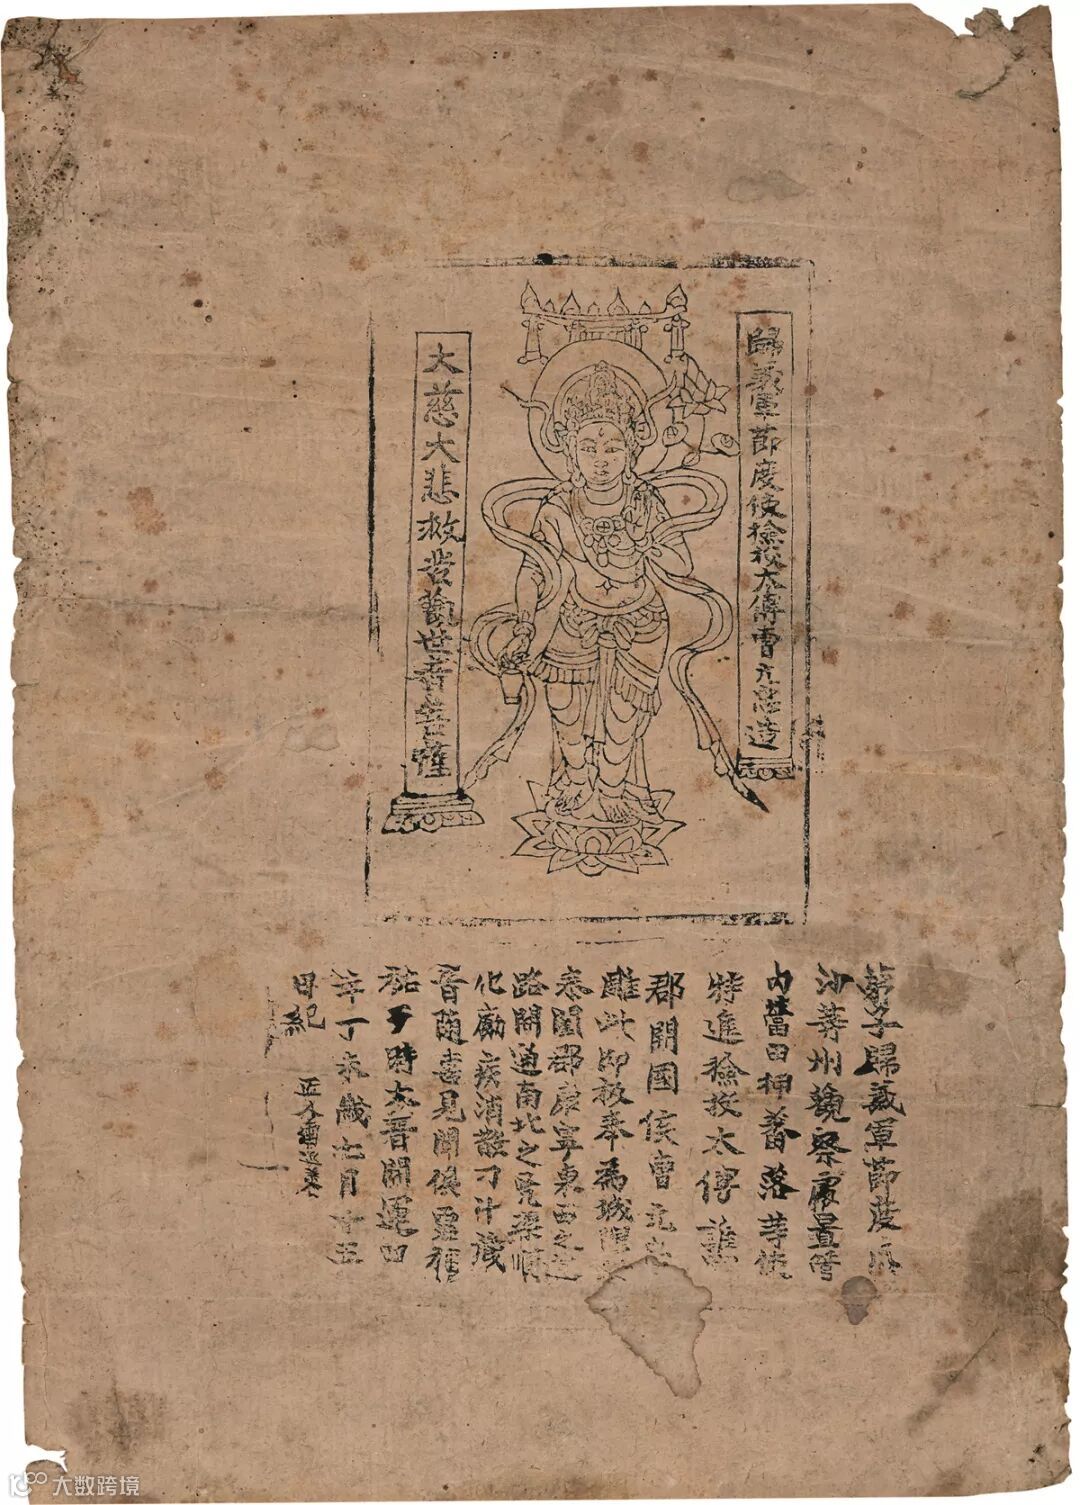 歸義軍節度使檢校太傅曹元忠造
大慈大悲救苦觀世音菩薩
弟子歸義軍節度瓜
沙等州觀察處置管
內營田押蕃落等使
特進檢校太傅譙
郡開國侯曹元忠
雕此印板奉為城隍
泰闔郡康寧東西之
路開通南北之兇渠順
化勵疾消散刁斗藏
音隨喜見聞俱霑福
祐于時大晉開運四
年丁未歲七月十五
日紀
匠人雷延美
大数跨境